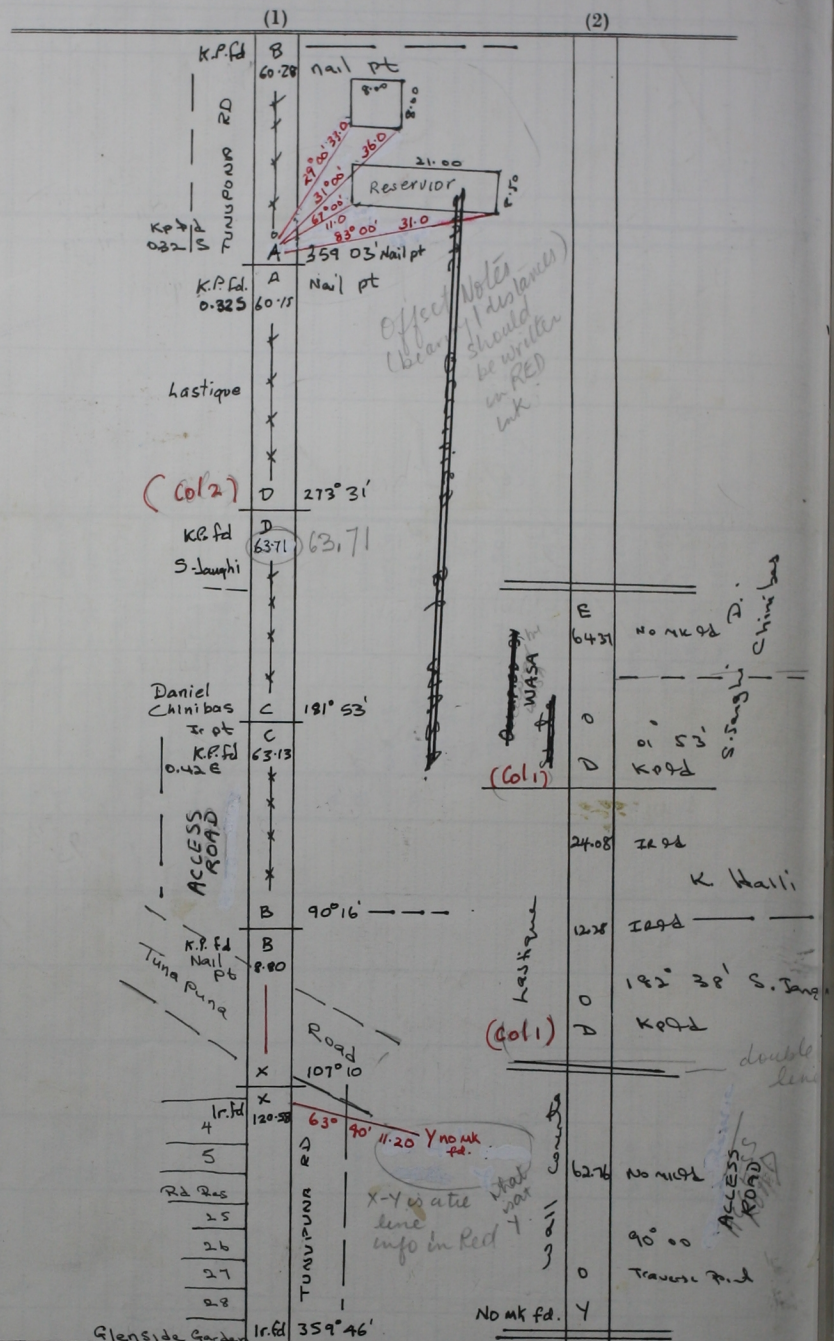 (1)
(2)
K.P.fd B
60.28 nail pt
8.00
8.00
TUNUPUNA RD
29°00' 33.0
31°00' 36.0
67°00' 11.0
83°00' 31.0
21.00
Reservior
8.50
Kpfd
0.32 S
A 359 03' Nail pt
K.P.fd. A Nail pt
0.32S 60.15
Offset Notes
(bearing / distances)
should
be written
in RED
ink
Lastique
(Col 2) D 273° 31'
K.P.fd D
63.71 63.71
S-Janghi
Daniel
Chinibas C 181° 53'
Ir pt C
K.P.fd 63.13
0.42 E
ACCESS
ROAD
B 90° 16'
K.P.fd B
Nail
pt 8.80
Tuna Puna
Road
X 107° 10
X
Ir.fd 120.58
63° 40' 11.20 Y no mk
fd.
4
5
Rd Res
25
26
27
28
TUNUPUNA RD
X-Y is a tie
line
info in Red
what
is at
Y
Glenside Garden Ir.fd 359° 46'
E
64.31 No mk fd
D.
Chinibas
S.Janghi
WASA
O 01° 53'
(Col 1) D Kpfd
24.08 IR fd
K Halli
12.28 IR fd
Lastique
O 182° 38' S. Jang
(Col 1) D Kpfd
double
line
wall
62.76 No mk fd
ACCESS
ROAD
90° 00
O Traverse Point
No mk fd. Y